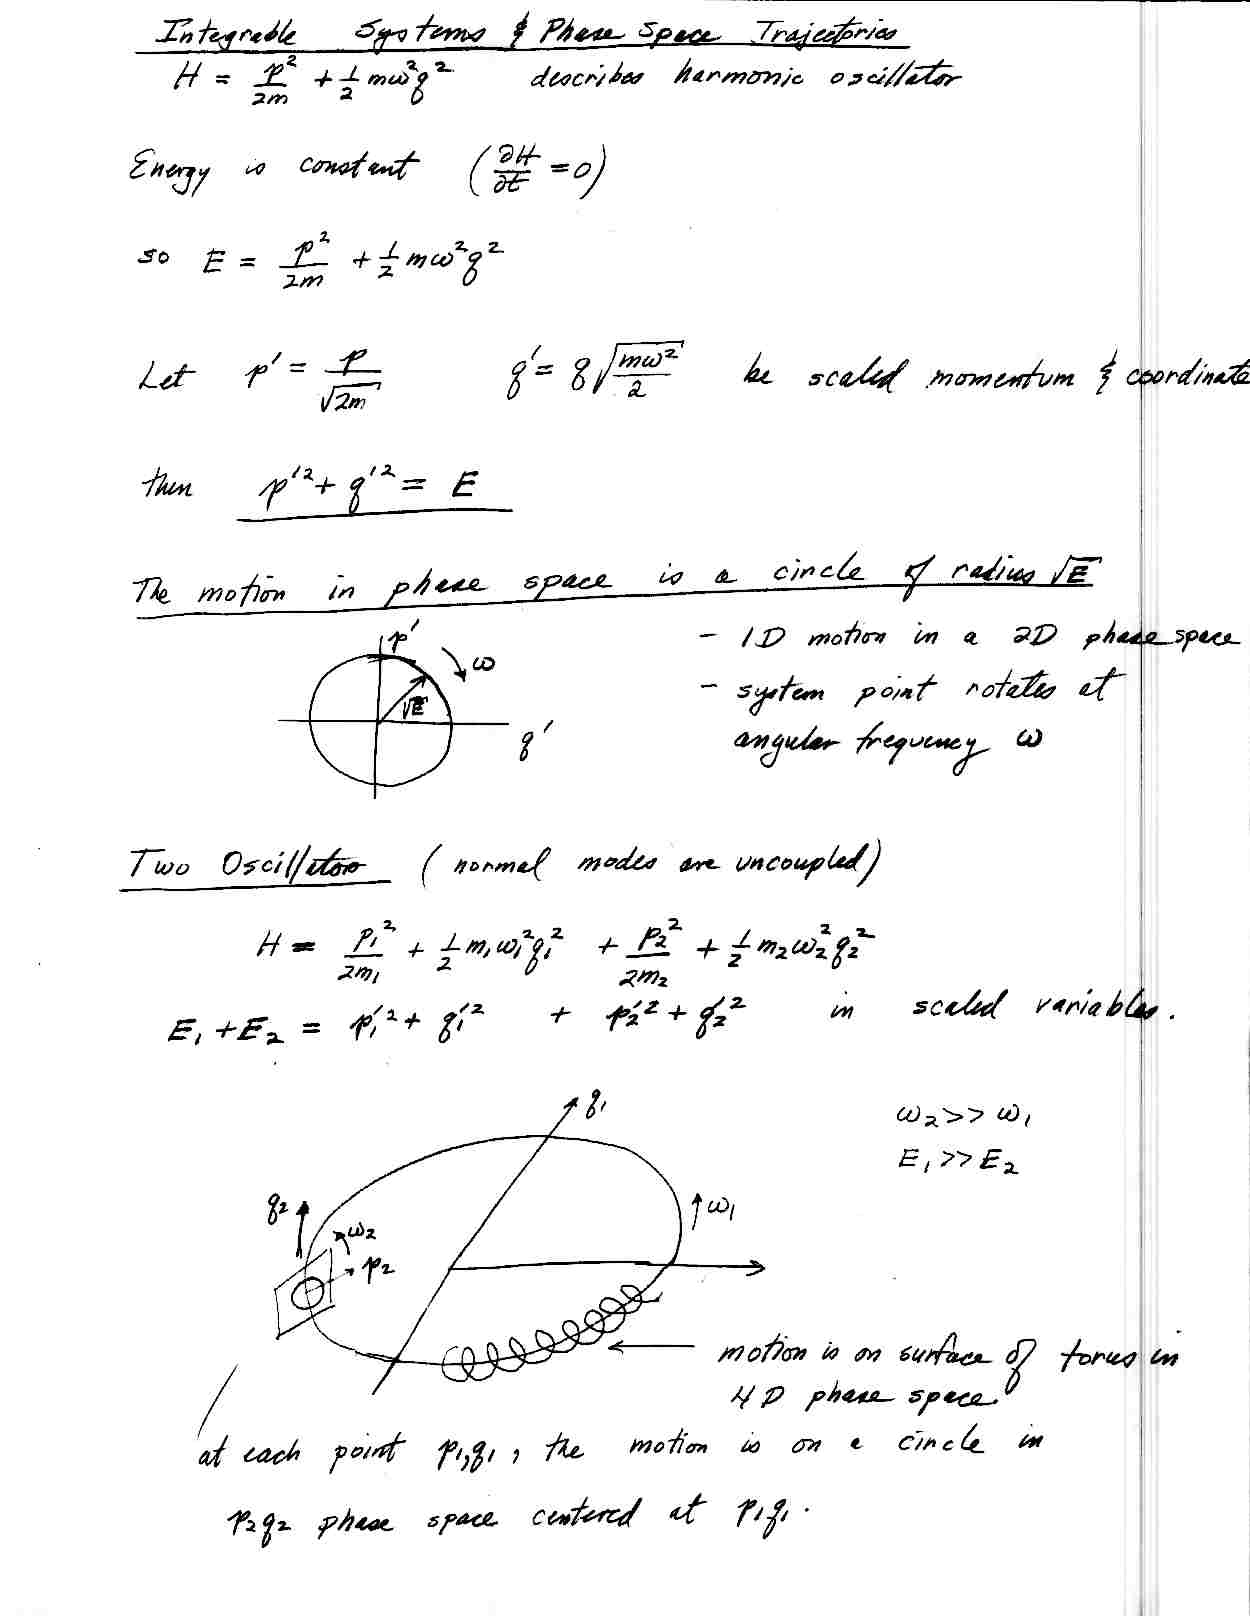 Integrable Systems & Phase Space Trajectories
H = p²/2m + ½ mω²q² describes harmonic oscillator
Energy is constant (∂H/∂t = 0)
so E = p²/2m + ½ mω²q²
Let p' = p/√2m q' = q√(mω²/2) be scaled momentum & coordinate
then p'² + q'² = E
The motion in phase space is a circle of radius √E
p'
ω
√E
q'
- 1D motion in a 2D phase space
- system point rotates at
angular frequency ω
Two Oscillators (normal modes are uncoupled)
H = p₁²/2m₁ + ½ m₁ω₁²q₁² + p₂²/2m₂ + ½ m₂ω₂²q₂²
E₁ + E₂ = p₁'² + q₁'² + p₂'² + q₂'² in scaled variables.
q₁
ω₂ >> ω₁
E₁ >> E₂
q₂
ω₂
p₂
ω₁
motion is on surface of torus in
4D phase space.
at each point p₁,q₁, the motion is on a circle in
p₂q₂ phase space centered at p₁q₁.